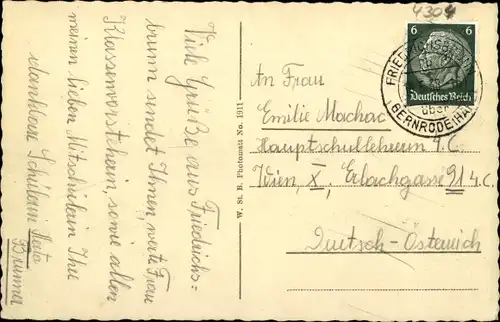 4304
Viele Grüße aus Friedrichs=
brunn sendet Ihnen, werte Frau
Klassenvorsteherin, sowie allen
meinen lieben Mitschülern Ihre
dankbare Schülerin
Brunner
W. St. B. Photomatt No. 1911
6 6
Deutsches Reich
FRIEDRICHSBRUNN
über
GERNRODE (HARZ)
An Frau
Emilie Machac
Hauptschullehrerin 4. C.
Wien, X, Erlachgasse 91 4. C
Deutsch-Österreich